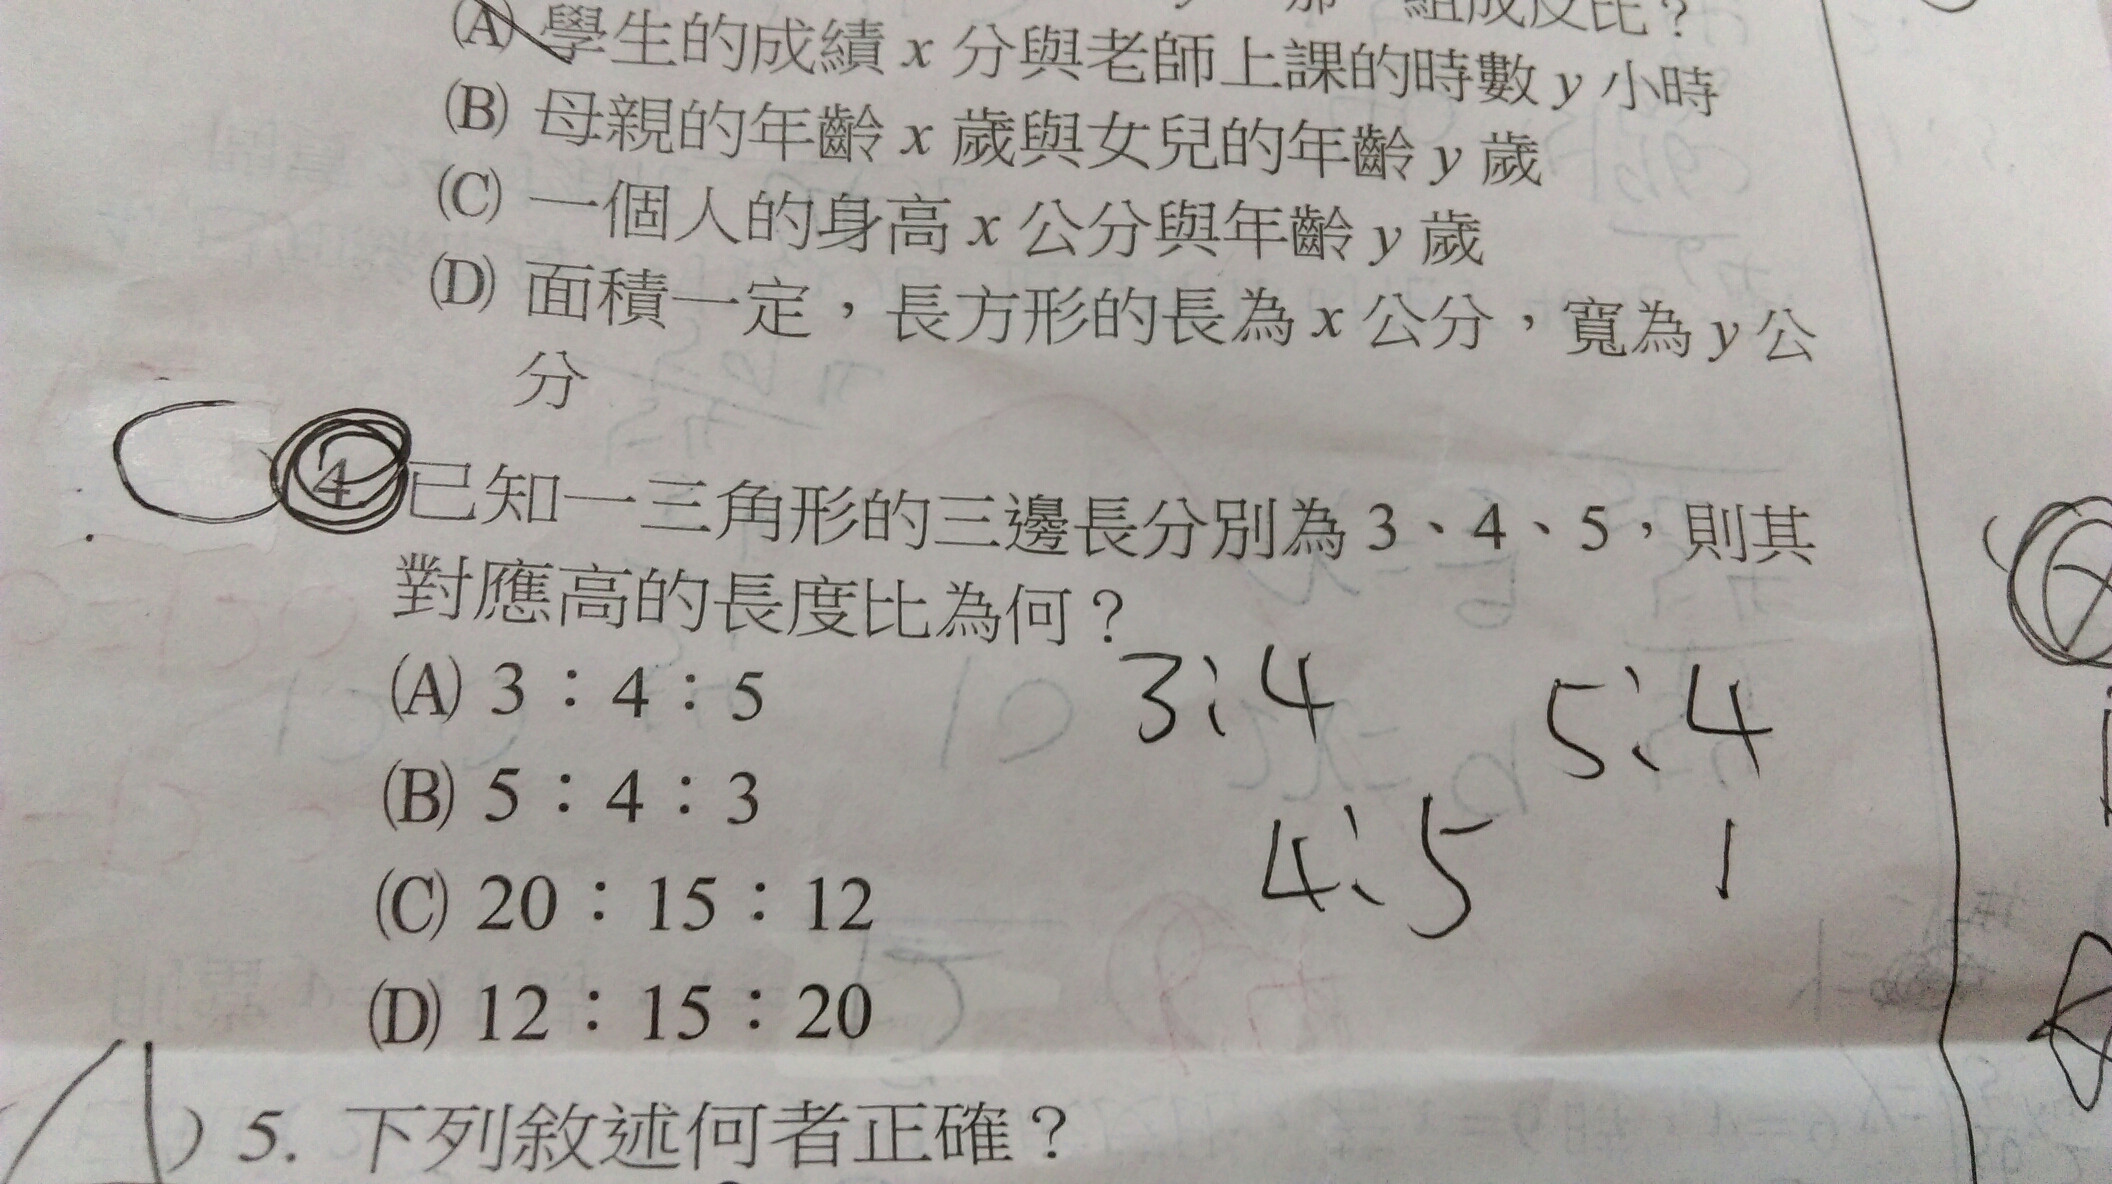 組成反比？
(A) 學生的成績 x 分與老師上課的時數 y 小時
(B) 母親的年齡 x 歲與女兒的年齡 y 歲
(C) 一個人的身高 x 公分與年齡 y 歲
(D) 面積一定，長方形的長為 x 公分，寬為 y 公
分
4 已知一三角形的三邊長分別為 3、4、5，則其
對應高的長度比為何？
(A) 3：4：5
3:4
5:4
(B) 5：4：3
4:5
1
(C) 20：15：12
(D) 12：15：20
) 5. 下列敘述何者正確？